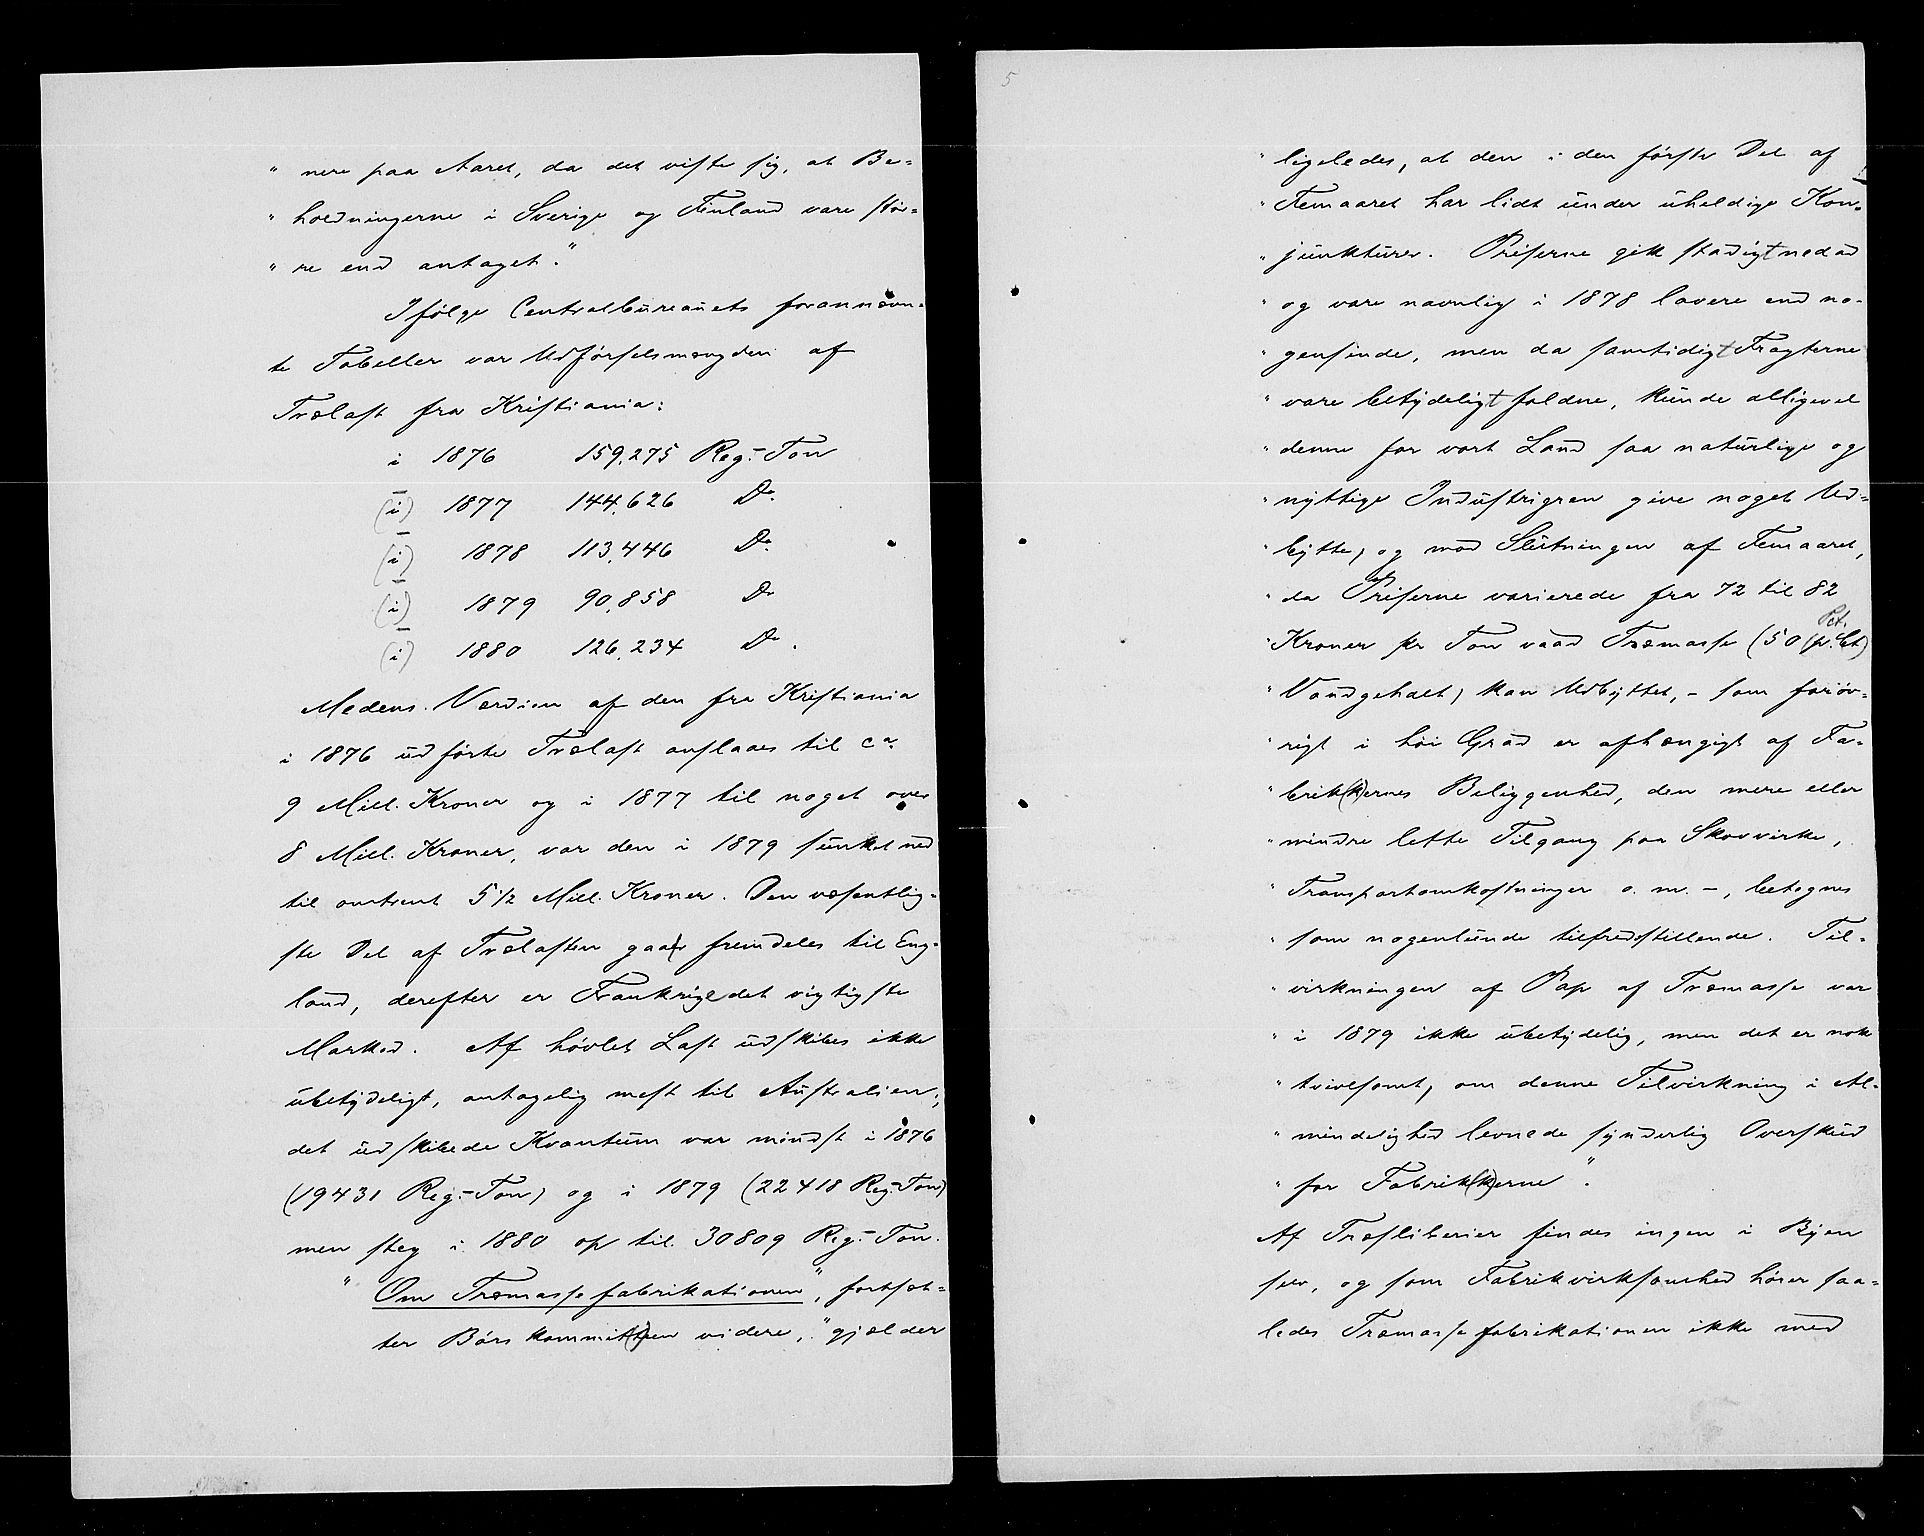 " nere paa Aaret, da det viste sig, at Be-
" holdningerne i Sverige og Finland vare stør-
" re end antaget."
Ifølge Centralbureauets forannævn-
te Tabeller var Udførselsmængden af
Trælast fra Kristiania:
i 1876 159,275 Reg.-Ton
(i) 1877 144,626 Do.
(i) 1878 113,446 Do.
(i) 1879 90,858 Do
(i) 1880 126,234 Do.
Medens Værdien af den fra Kristiania
i 1876 udførte Trælast anslaaes til ca.
9 Mill. Kroner og i 1877 til noget over
8 Mill. Kroner, var den i 1879 sunket ned
til omtrent 5 1/2 Mill. Kroner. Den væsentlig-
ste Del af Trælasten gaar fremdeles til Eng-
land, derefter er Frankrige det vigtigste
Marked. Af høvlet Last udskibes ikke
ubetydeligt, antagelig mest til Australien;
det udskibede Kvantum var mindst i 1876
(19431 Reg.-Ton) og i 1879 (22418 Reg.-Ton)
men steg i 1880 op til 30809 Reg.-Ton.
" Om Træmassefabrikationen", fortsæt-
ter Børskommitteen videre, "gjælder
5
" ligeledes, at den i den første Del af
" Femaaret har lidt under uheldige Kon-
" junkturer. Priserne gik stadigt nedad
" og vare navnlig i 1878 lavere end no-
" gensinde, men da samtidigt Fragterne
" vare betydeligt faldne, kunde alligevel
" denne for vort Land saa naturlige og
" nyttige Industrigren give noget Ud-
" bytte, og mod Slutningen af Femaaret,
" da Priserne varierede fra 72 til 82
" Kroner pr Ton vaad Træmasse (50 p. Ct Pct.)
" Vandgehalt, kan Udbyttet, - som forøv-
" rigt i høi Grad er afhængigt af Fa-
" brik(k)ernes Beliggenhed, den mere eller
" mindre lette Tilgang paa Skovvirke,
" Transportomkostninger o. m. -, betegnes
" som nogenlunde tilfredstillende. Til-
" virkningen af Pap af Træmasse var
" i 1879 ikke ubetydelig, men det er nok
" tvivlsomt, om denne Tilvirkning i Al-
" mindelighed levnede synderlig Overskud
" for Fabrik(k)erne".
Af Træsliberier findes ingen i Byen
selv, og som Fabrikvirksomhed hører saa-
ledes Træmassefabrikationen ikke med